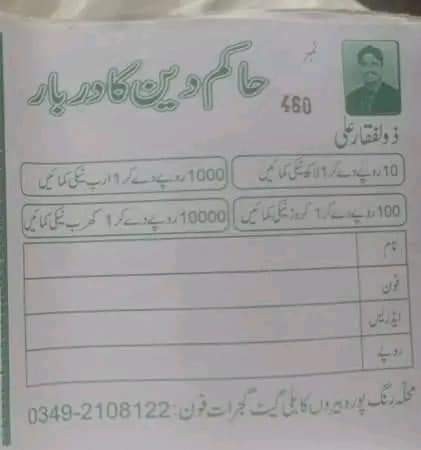 نمبر
460
حاکم دین کا دربار
ذولفقار علی
10 روپے دے کر 1 لاکھ نیکی کمائیں
1000 روپے دے کر 1 ارب نیکی کمائیں
100 روپے دے کر 1 کروڑ نیکی کمائیں
10000 روپے دے کر 1 کھرب نیکی کمائیں
نام
فون
ایڈریس
روپے
محلہ رنگ پورہ بیروں کابلی گیٹ گجرات فون: 0349-2108122